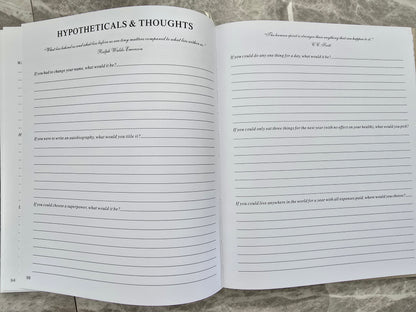 HYPOTHETICALS & THOUGHTS
"What lies behind us and what lies before us are tiny matters compared to what lies within us."
Ralph Waldo Emerson
If you had to change your name, what would it be?
If you were to write an autobiography, what would you title it?
If you could choose a superpower, what would it be?
"The human spirit is stronger than anything that can happen to it."
C.C. Scott
If you could do any one thing for a day, what would it be?
If you could only eat three things for the next year (with no effect on your health), what would you pick?
If you could live anywhere in the world for a year with all expenses paid, where would you choose?